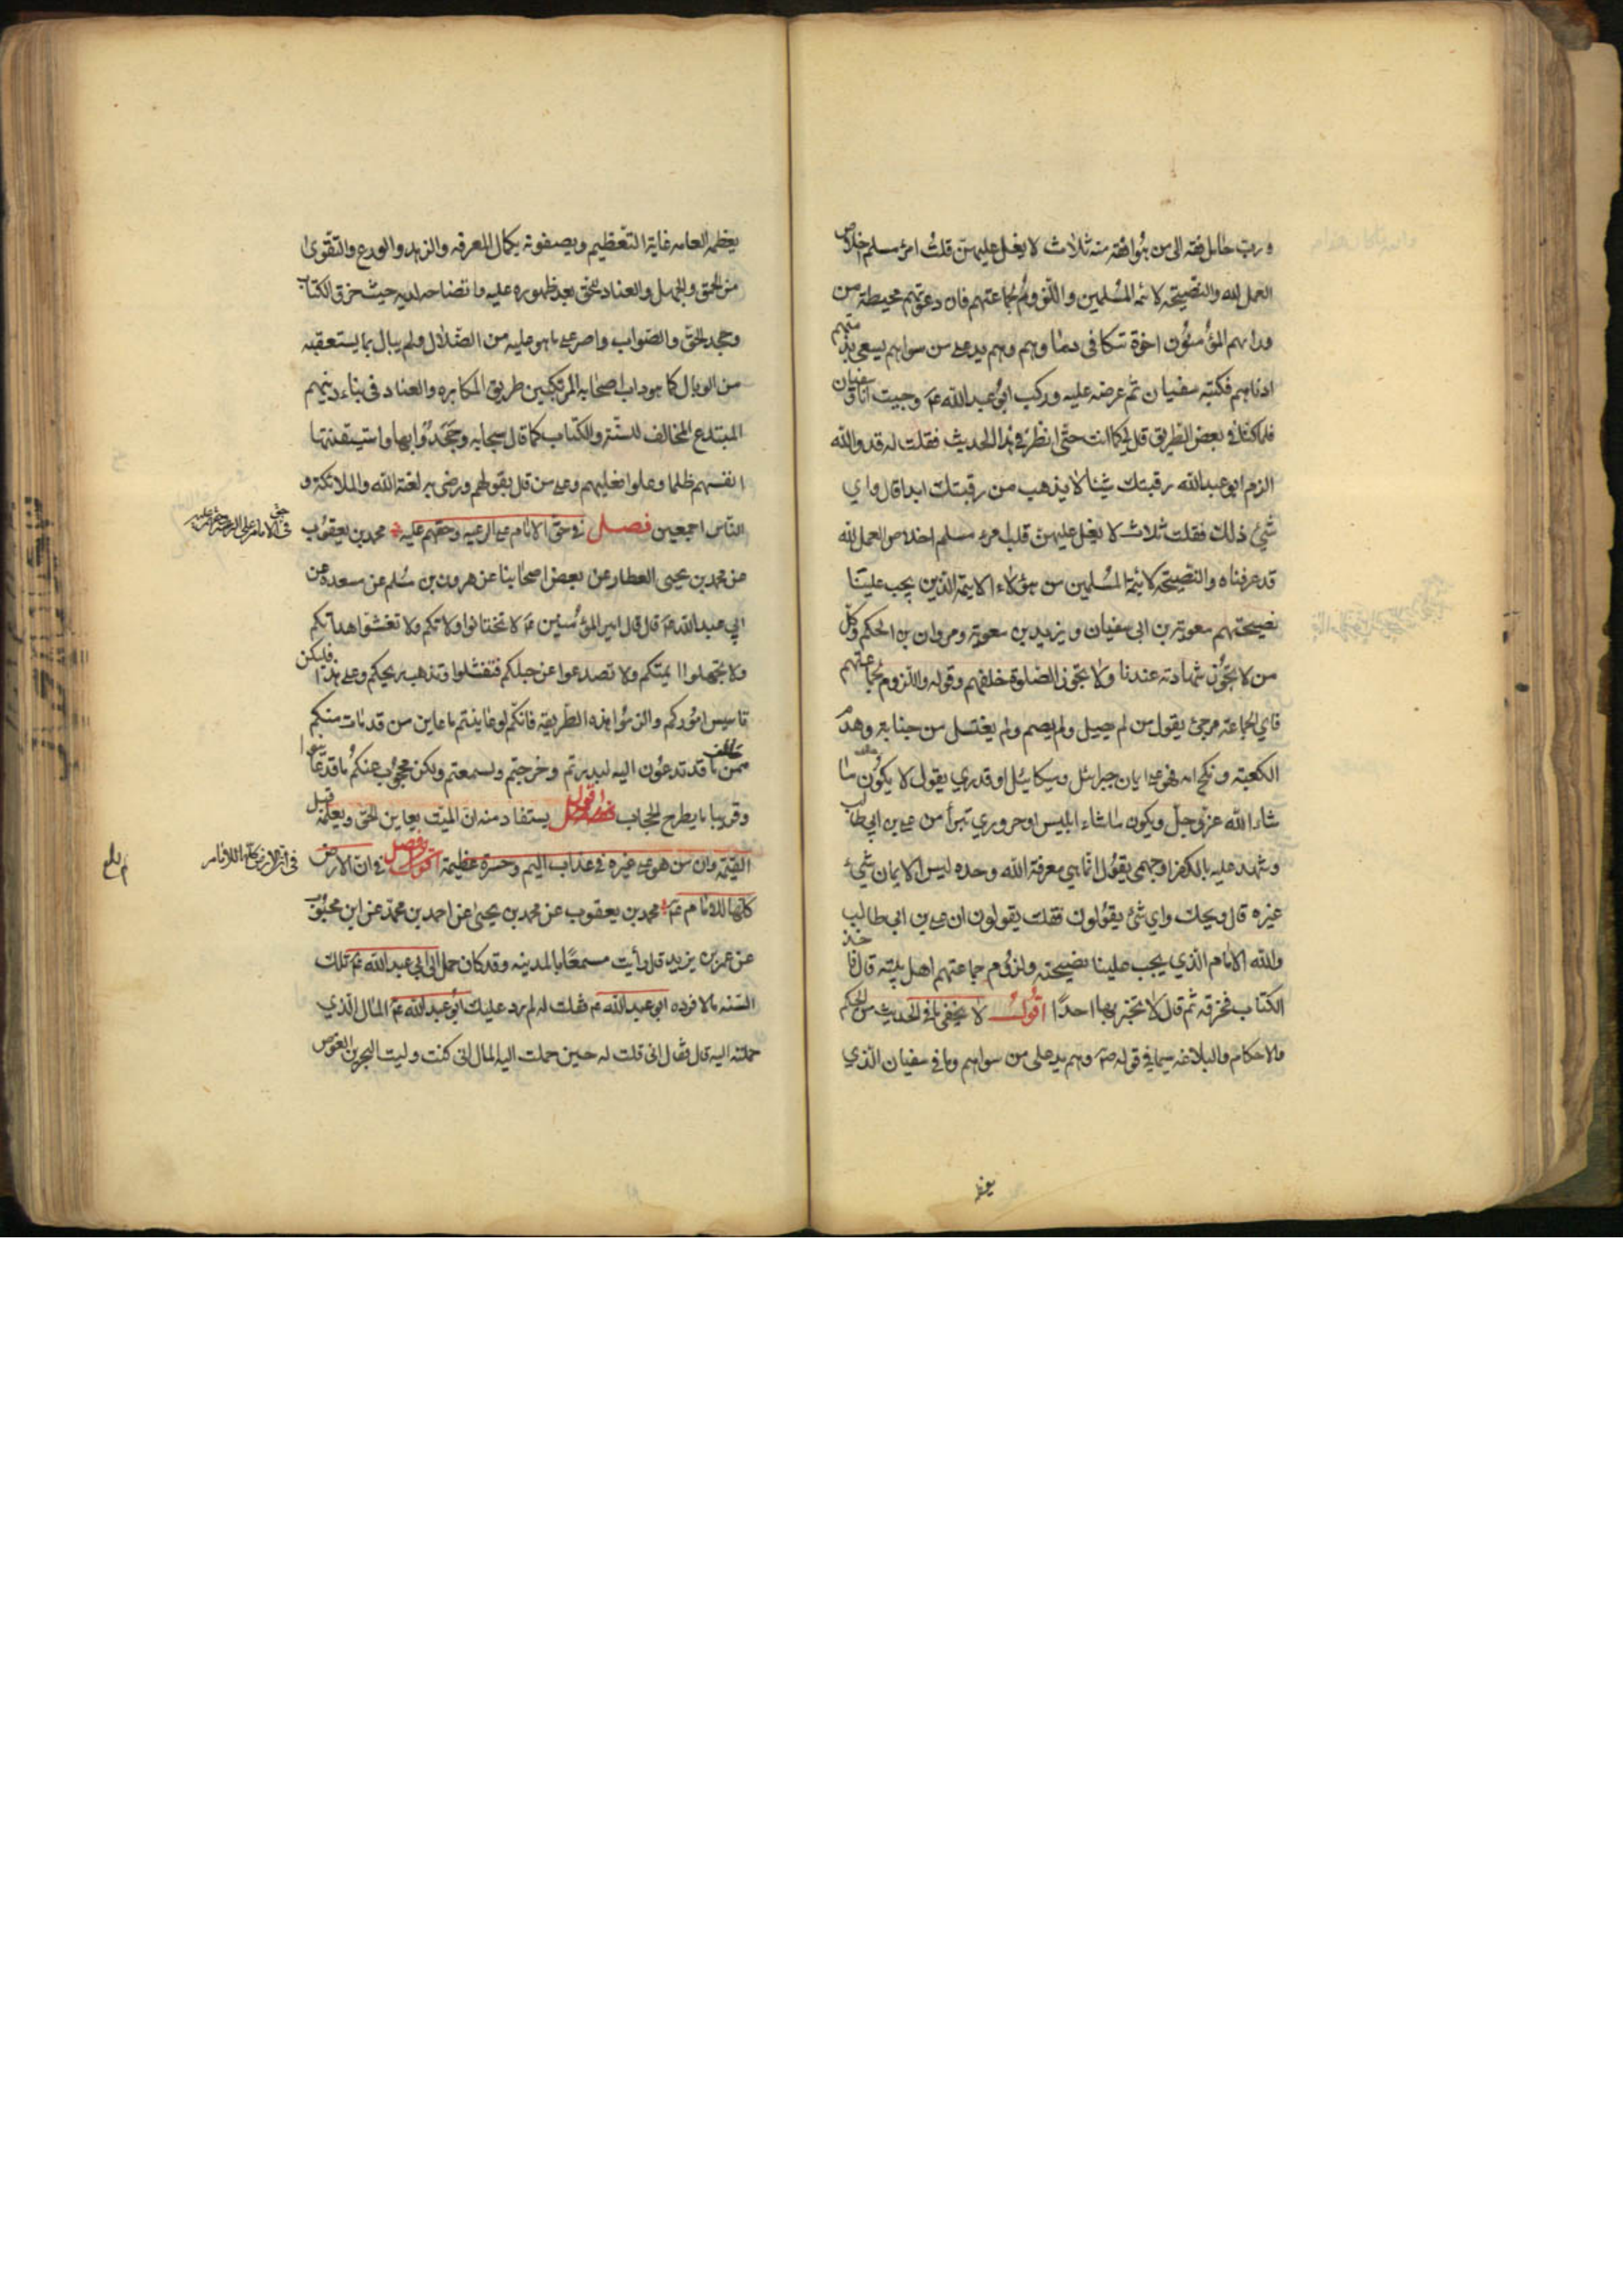 ورب حامل فقه الى من هو افقه منه ثلاث لا يغل عليهن قلب امرئ مسلم اخلاص
العمل لله والنصيحة لائمة المسلمين واللزوم لجماعتهم فان دعوتهم محيطة من
ورائهم المؤمنون اخوة تتكافى دماؤهم وهم يد على من سواهم يسعى بذمتهم
ادناهم فكتبه سفيان ثم عرضه عليه وركب ابو عبدالله عم وجيت انا وسفيان
فلما كنا في بعض الطريق قال لي كما انت حتى انظر في هذا الحديث فقلت له قد والله
الزم ابو عبدالله رقبتك شيئا لا يذهب من رقبتك ابدا قال واي
شئ ذلك فقلت ثلاث لا يغل عليهن قلب امرء مسلم اخلاص العمل لله
قد عرفناه والنصيحة لائمة المسلمين من هؤلاء الائمة الذين يجب علينا
نصيحتهم معوية بن ابى سفيان ويزيد بن معوية ومروان بن الحكم وكل
من لا تجوز شهادته عندنا ولا تجوز الصلوة خلفهم وقوله واللزوم لجماعتهم
فاي الجماعة مرجئ يقول من لم يصل ولم يصم ولم يغتسل من جنابة وهدم
الكعبة ونكح امه فهو على ايمان جبرائيل وميكائيل او قدري يقول لا يكون ما
شاء الله عز وجل ويكون ما شاء ابليس او حروري تبرأ من علي بن ابي طالب
وشهد عليه بالكفر او جهمي يقول انما هي معرفة الله وحده ليس الايمان شئ
غيره قال ويحك واي شئ يقولون فقلت يقولون ان علي بن ابي طالب
والله الامام الذي يجب علينا نصيحته ولزوم جماعتهم اهل بيته قال فاخذ
الكتاب فخرقه ثم قال لا تخبر بها احدا اقول لا يخفى ما في الحديث من الحكم
والاحكام والبلاغه سيما في قوله ص وهم يد على من سواهم وما في سفيان الذي
يعظمه العامه غاية التعظيم ويصفونه بكمال المعرفه والزهد والورع والتقوى
من الحمق والجهل والعناد للحق بعد ظهوره عليه ما تضاحه لديه حيث خرق الكتاب
وجحد الحق والصواب واصر على ما هو عليه من الضلال ولم يبال بما يستعقبه
من الوبال كما هو داب اصحابه المرتكبين طريق المكابره والعناد في بناء دينهم
المبتدع المخالف للسنة والكتاب كما قال سبحانه وجحدوا بها واستيقنتها
انفسهم ظلما وعلوا فعليهم وعلى من قال بقولهم ورضى به لعنة الله والملائكة و
الناس اجمعين فصل في حق الامام على الرعيه وحقهم عليه محمد بن يعقوب
في حق الامام على الرعية وحقهم عليه
عن محمد بن يحيى العطار عن بعض اصحابنا عن هرون بن مسلم عن مسعدة عن
ابي عبدالله عم قال قال امير المؤمنين عم لا تختانوا ولاتكم ولا تغشوا هداتكم
ولا تجهلوا ائمتكم ولا تصدعوا عن حبلكم فتفشلوا وتذهب ريحكم وعلى هذا فليكن
تاسيس اموركم والزموا هذه الطريقه فانكم لو عاينتم ما عاين من قد مات منكم
ممن خالف ما قد تدعون اليه لبدرتم وخرجتم ولسمعتم ولكن محجوب عنكم ما قد عاينوا
وقريبا ما يطرح الحجاب اقول يستفاد منه ان الميت يعاين الحق ويعلمه قبل
القيمة وان من هو على غيره في عذاب اليم وحسرة عظيمة فصل في ان الارض
في ان الارض كلها للامام
كلها للامام عم محمد بن يعقوب عن محمد بن يحيى عن احمد بن محمد عن ابن محبوب
عن عمر بن يزيد قال رأيت مسمعا بالمدينه وقد كان حمل الى ابي عبدالله عم تلك
السنه مالا فرده ابي عبدالله عم فقلت له لم رد عليك ابو عبدالله عم المال الذي
حملته اليه قال فقال انى قلت له حين حملت اليه المال انى كنت وليت البحرين الغوص
يعظمه